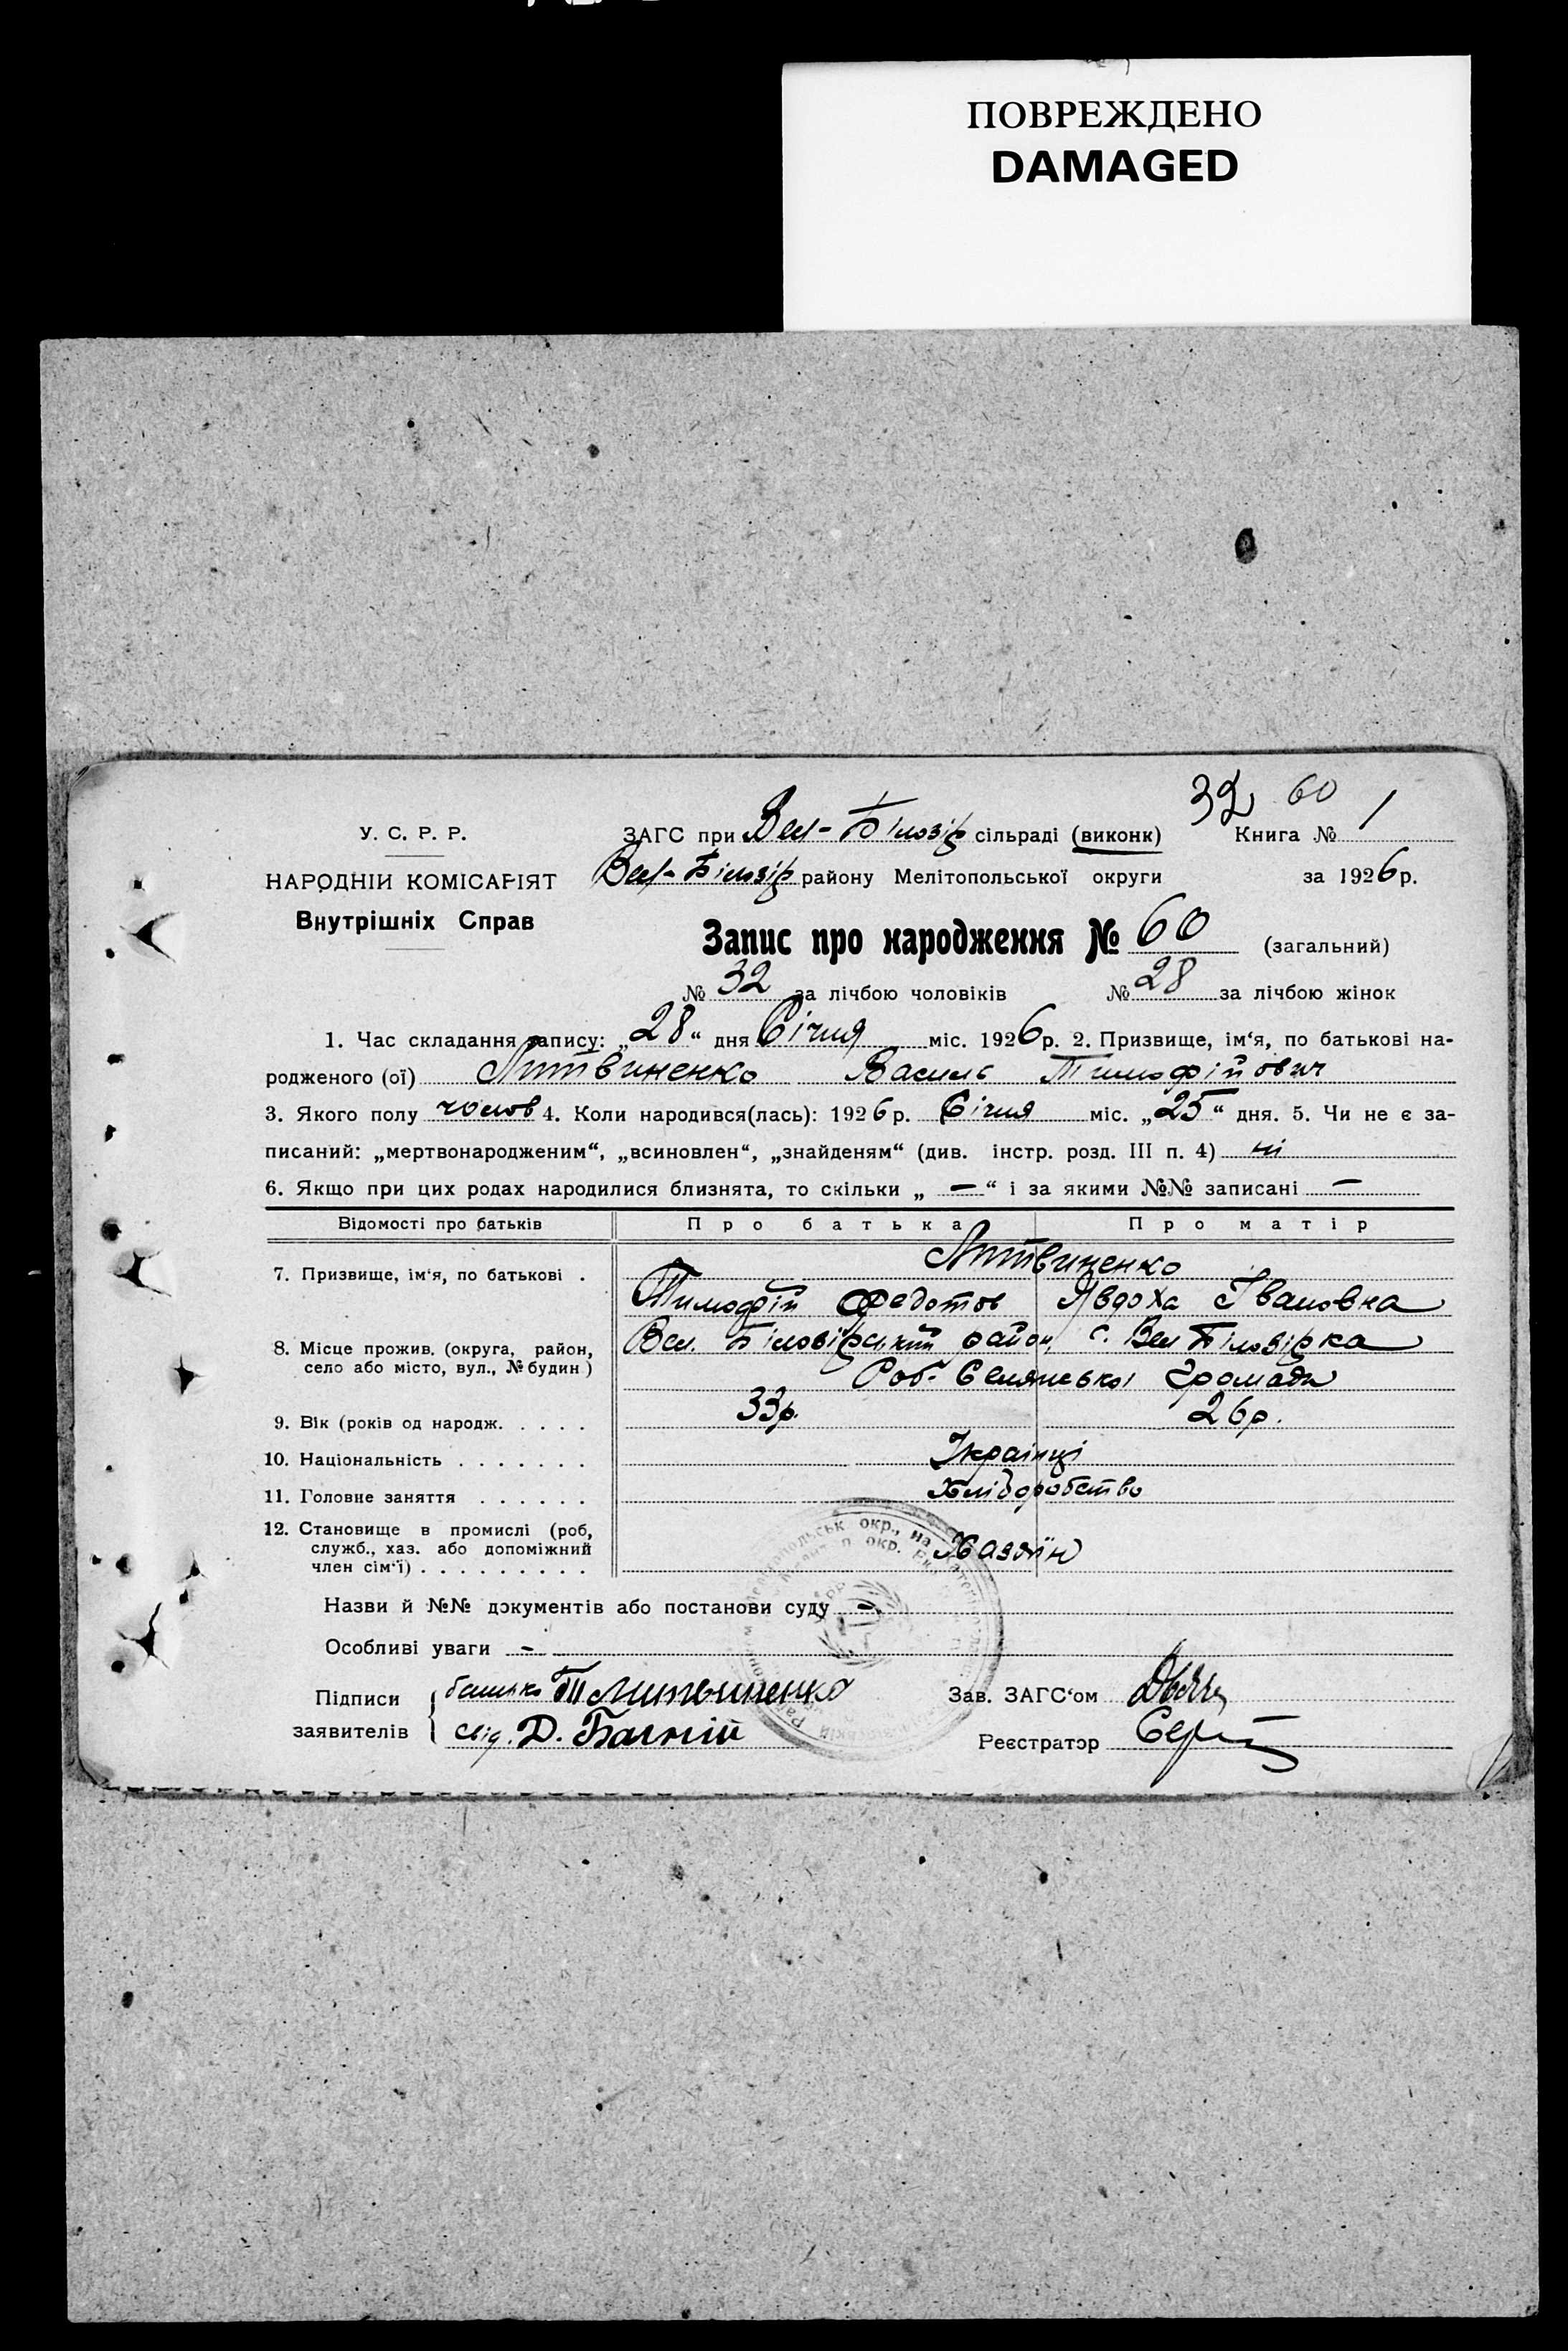 ПОВРЕЖДЕНО
DAMAGED
32 60
У. С. Р. Р. ЗАГС при Вел-Білозір сільраді (виконк) Книга № 1
НАРОДНІЙ КОМІСАРІЯТ Вел-Білозір району Мелітопольської округи за 1926 р.
Внутрішніх Справ
Запис про народження № 60 (загальний)
№ 32 за лічбою чоловіків № 28 за лічбою жінок
1. Час складання запису: „28“ дня Січня міс. 1926 р. 2. Призвище, ім‘я, по батькові на-
родженого (ої) Литвиненко Василь Тимофійович
3. Якого полу чолов 4. Коли народився(лась): 1926 р. Січня міс. „25“ дня. 5. Чи не є за-
писаний: „мертвонародженим“, „всиновлен“, „знайденям“ (див. інстр. розд. III п. 4) ні
6. Якщо при цих родах народилися близнята, то скільки „ — “ і за якими №№ записані —
Відомості про батьків Про батька Про матір
Литвиненко
7. Призвище, ім‘я, по батькові . Тимофій Федотов Явдоха Івановна
8. Місце прожив. (округа, район, Вел. Білозірський район, с. Вел Білозірка
село або місто, вул., № будин) Роб. Селянської Громади
9. Вік (років од народж. . . . . 33р. 26р.
10. Національність . . . . . . . Українці
11. Головне заняття . . . . . . Хліборобство
12. Становище в промислі (роб,
служб., хаз. або допоміжний Хазяїн
член сім‘ї) . . . . . . . . .
Назви й №№ документів або постанови суду -
Особливі уваги -
Підписи батько Т Литвиненко Зав. ЗАГС‘ом
заявителів свід. Д. Багній Реєстратор